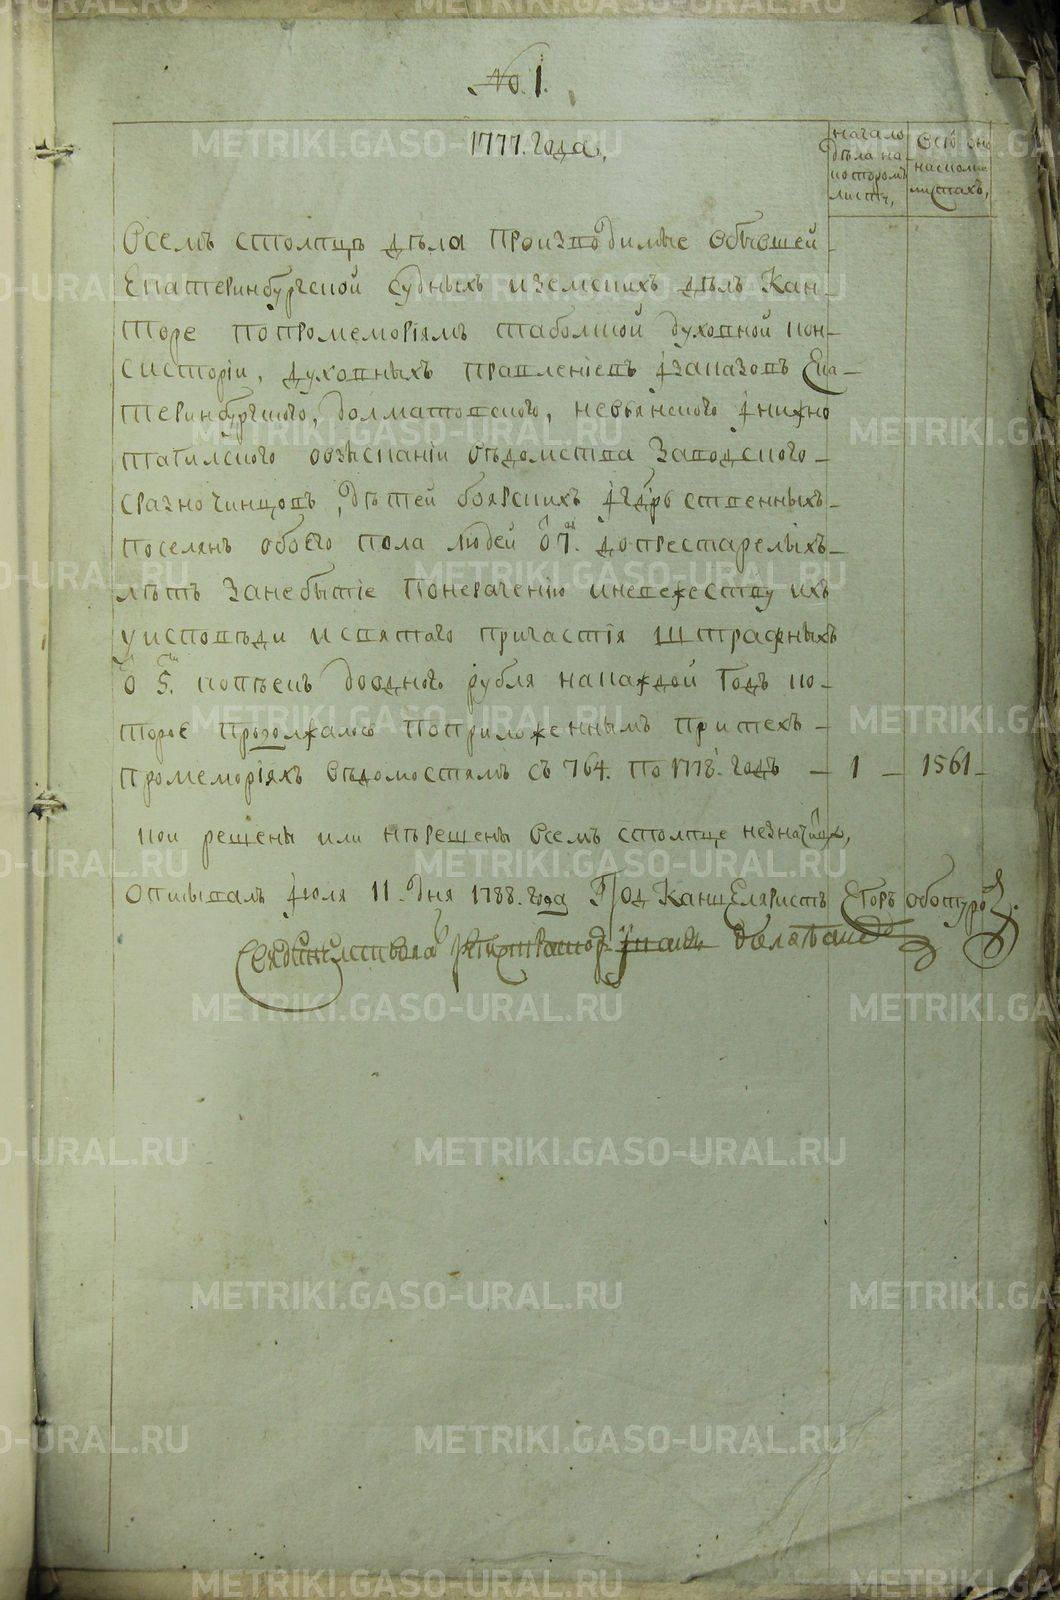 No. 1.
1777. года,
начало
дѣла на
котором
листѣ,
всю оно
насколки
листахъ,
Всемъ столпцѣ дѣла производимые вбывшей
Екатеринбургской судныхъ иземскихъ дѣлъ Кан-
торе попромеморіямъ тоболской духовной кон-
систоріи, духовныхъ правленіевъ ізаказовъ Ека-
теринбургского, долматовского, невьянского інижно
тагилского овзысканіи вѣдомства Заводского
сразночинцовъ, дѣтей боярскихъ ігдрьственныхъ
поселянъ обоего пола людей о 7. допрестарелыхъ
лѣтъ Занебытіе понерачению иневежеству ихъ
уисповѣди исвятаго причастія штрафныхъ
о 5. копѣекъ доодного рубля накаждой годъ ко-
торое продолжалось поприложеннымъ притехъ
промеморіяхъ вѣдомостямъ съ 764. по 1778. годъ — 1 — 1561
кои решены или нѣрешены всемъ столпце незначитъ,
Описывалъ іюля 11. дня 1788. года Под Канцеляристъ Егоръ